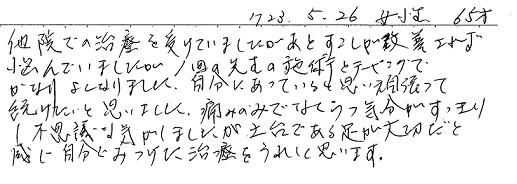 H23. 5. 26 女性 65才
他院での治療を受けていましたがあとすこしが改善されず
悩んでいましたが1回の先生の施術とテーピングで
かなりよくなりました。自分にあっていると思い頑張って
続けたいと思いました。痛みのみでなくうつ気分がすっきり
し不思議な気がしましたが土台である足が大切だと
感じ自分でみつけた治療をうれしく思います。